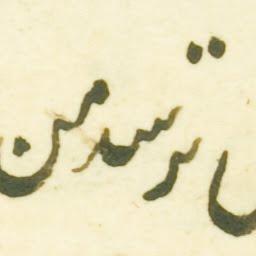 ترسد من